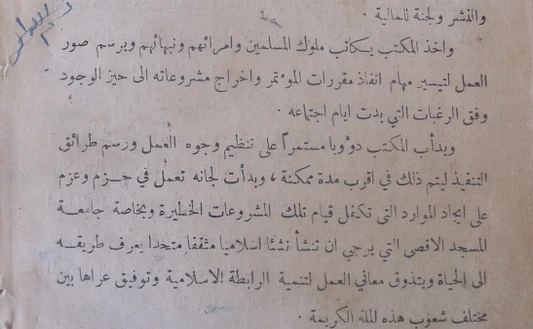 والنشر ولجنة للمالية .
واخذ المكتب يكاتب ملوك المسلمين وامرائهم ونبهائهم ويرسم صور
العمل لتيسير مهام انفاذ مقررات المؤتمر واخراج مشروعاته الى حيز الوجود
وفق الرغبات التي بدت ايام اجتماعه .
ويدأب المكتب دؤوبا مستمراً على تنظيم وجوه العمل ورسم طرائق
التنفيذ ليتم ذلك في اقرب مدة ممكنة ، وبدأت لجانه تعمل في حزم وعزم
على ايجاد الموارد التى تكفل قيام تلك المشروعات الخطيرة وبخاصة جامعة
المسجد الاقصى التي يرجى ان تنشأ نشئا اسلاميا مثقفا متحدا يعرف طريقه
الى الحياة ويتذوق معاني العمل لتنمية الرابطة الاسلامية وتوفيق عراها بين
مختلف شعوب هذه الملة الكريمة .